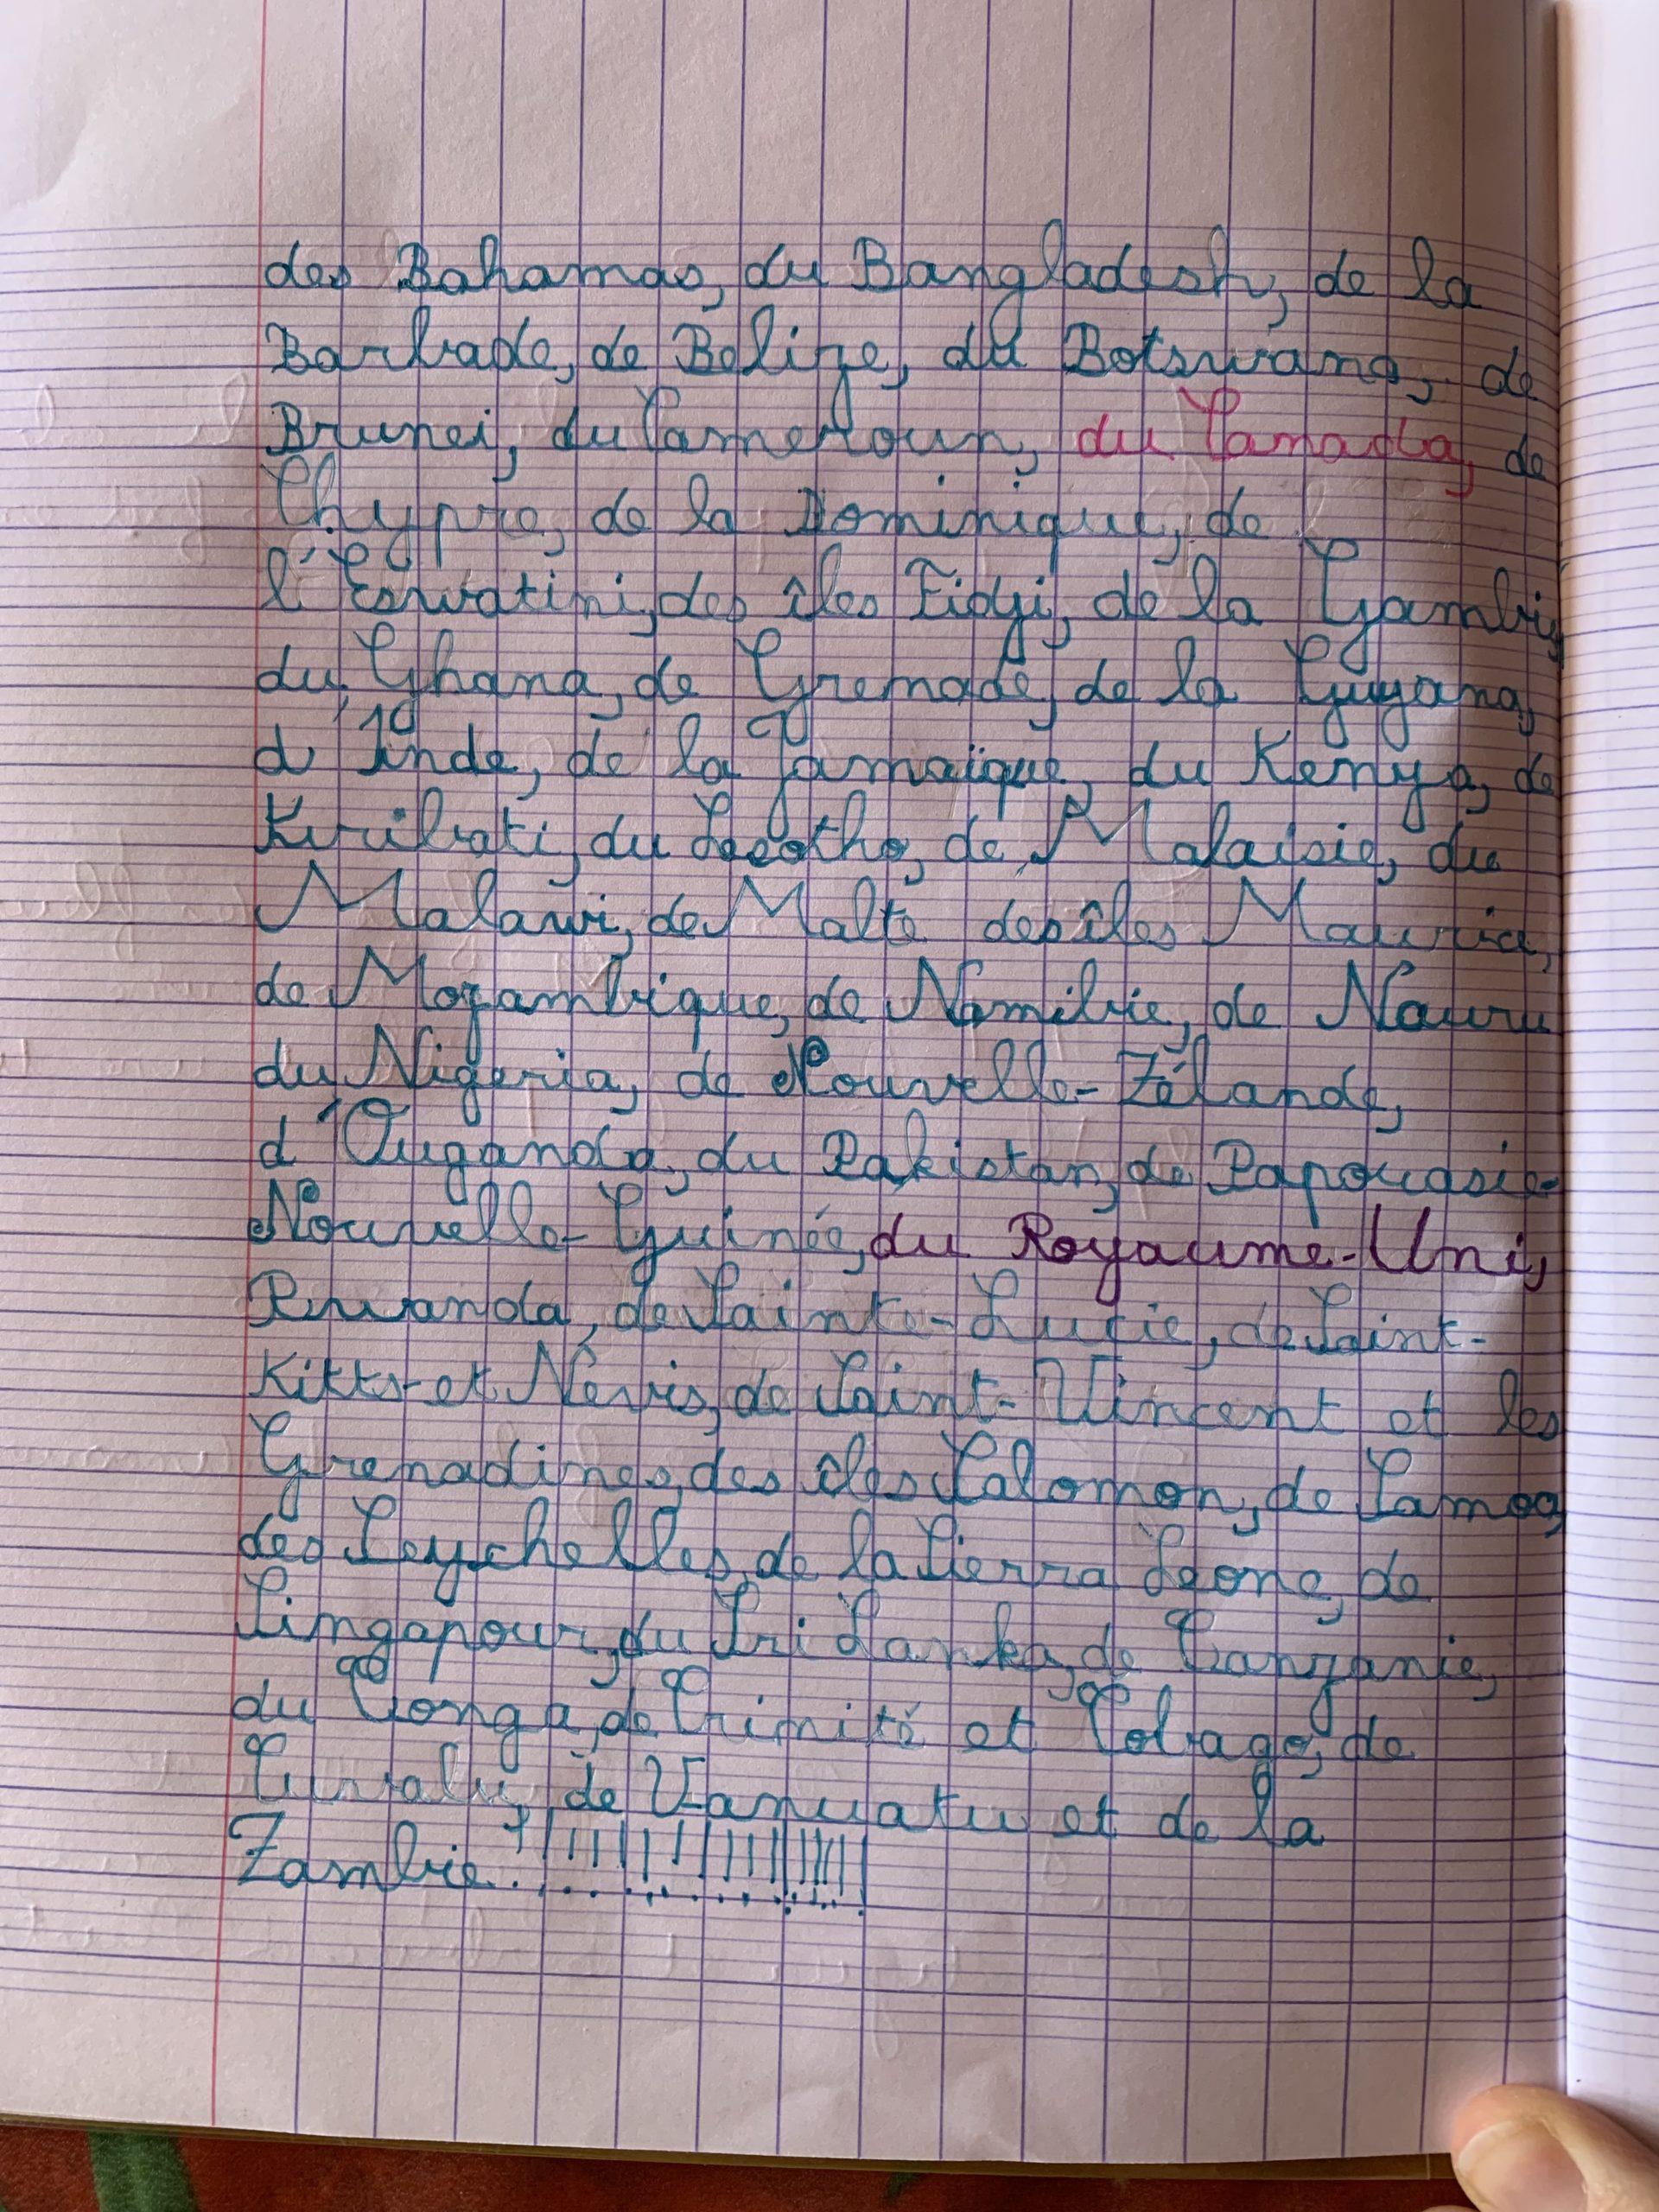 des Bahamas, du Bangladesh, de la
Barbade, de Belize, du Botswana, de
Brunei, du Cameroun, du Canada, de
Chypre, de la Dominique, de
l'Eswatini, des îles Fidji, de la Gambie,
du Ghana, de Grenade, de la Guyana,
d'Inde, de la Jamaïque, du Kenya, de
Kiribati, du Lesotho, de Malaisie, du
Malawi, de Malte des îles Maurice,
de Mozambique, de Namibie, de Nauru
du Nigeria, de Nouvelle-Zélande,
d'Ouganda, du Pakistan, de Papouasie-
Nouvelle-Guinée, du Royaume-Uni,
Rwanda, de Sainte-Lucie, de Saint-
Kitts-et Névis, de Saint-Vincent et les
Grenadines, des îles Salomon, de Samoa,
des Seychelles, de la Sierra Leone, de
Singapour, du Sri Lanka, de Tanzanie,
du Tonga, de Trinité et Tobago, de
Tuvalu, de Vanuatu et de la
Zambie.!!!!!!!!!!!!!!!!!!!!